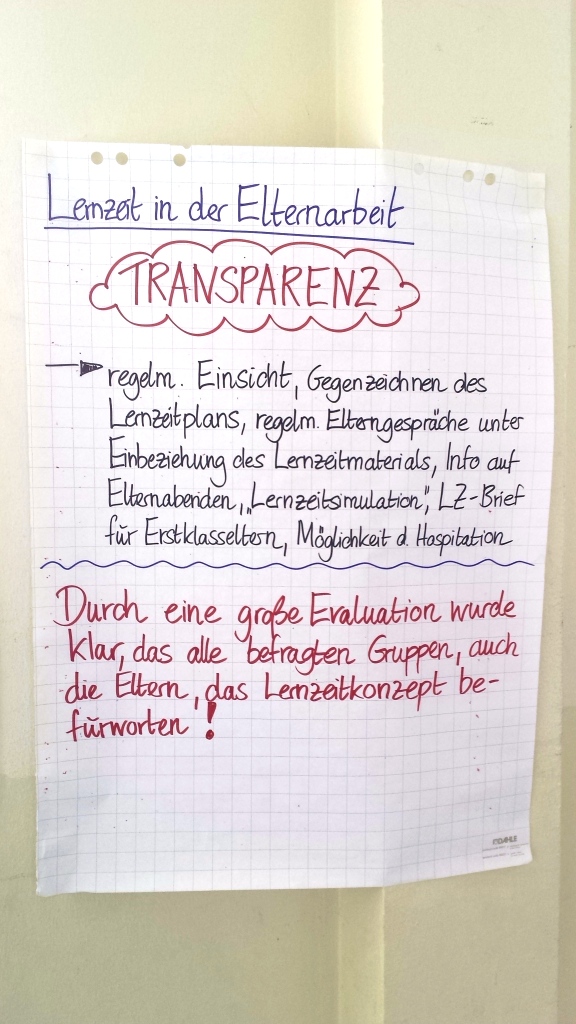 Lernzeit in der Elternarbeit
TRANSPARENZ
regelm. Einsicht, Gegenzeichnen des
Lernzeitplans, regelm. Elterngespräche unter
Einbeziehung des Lernzeitmaterials, Info auf
Elternabenden, „Lernzeitsimulation", LZ-Brief
für Erstklasseltern, Möglichkeit d. Hospitation
Durch eine große Evaluation wurde
klar, das alle befragten Gruppen, auch
die Eltern, das Lernzeitkonzept be-
fürworten!
DAHLE